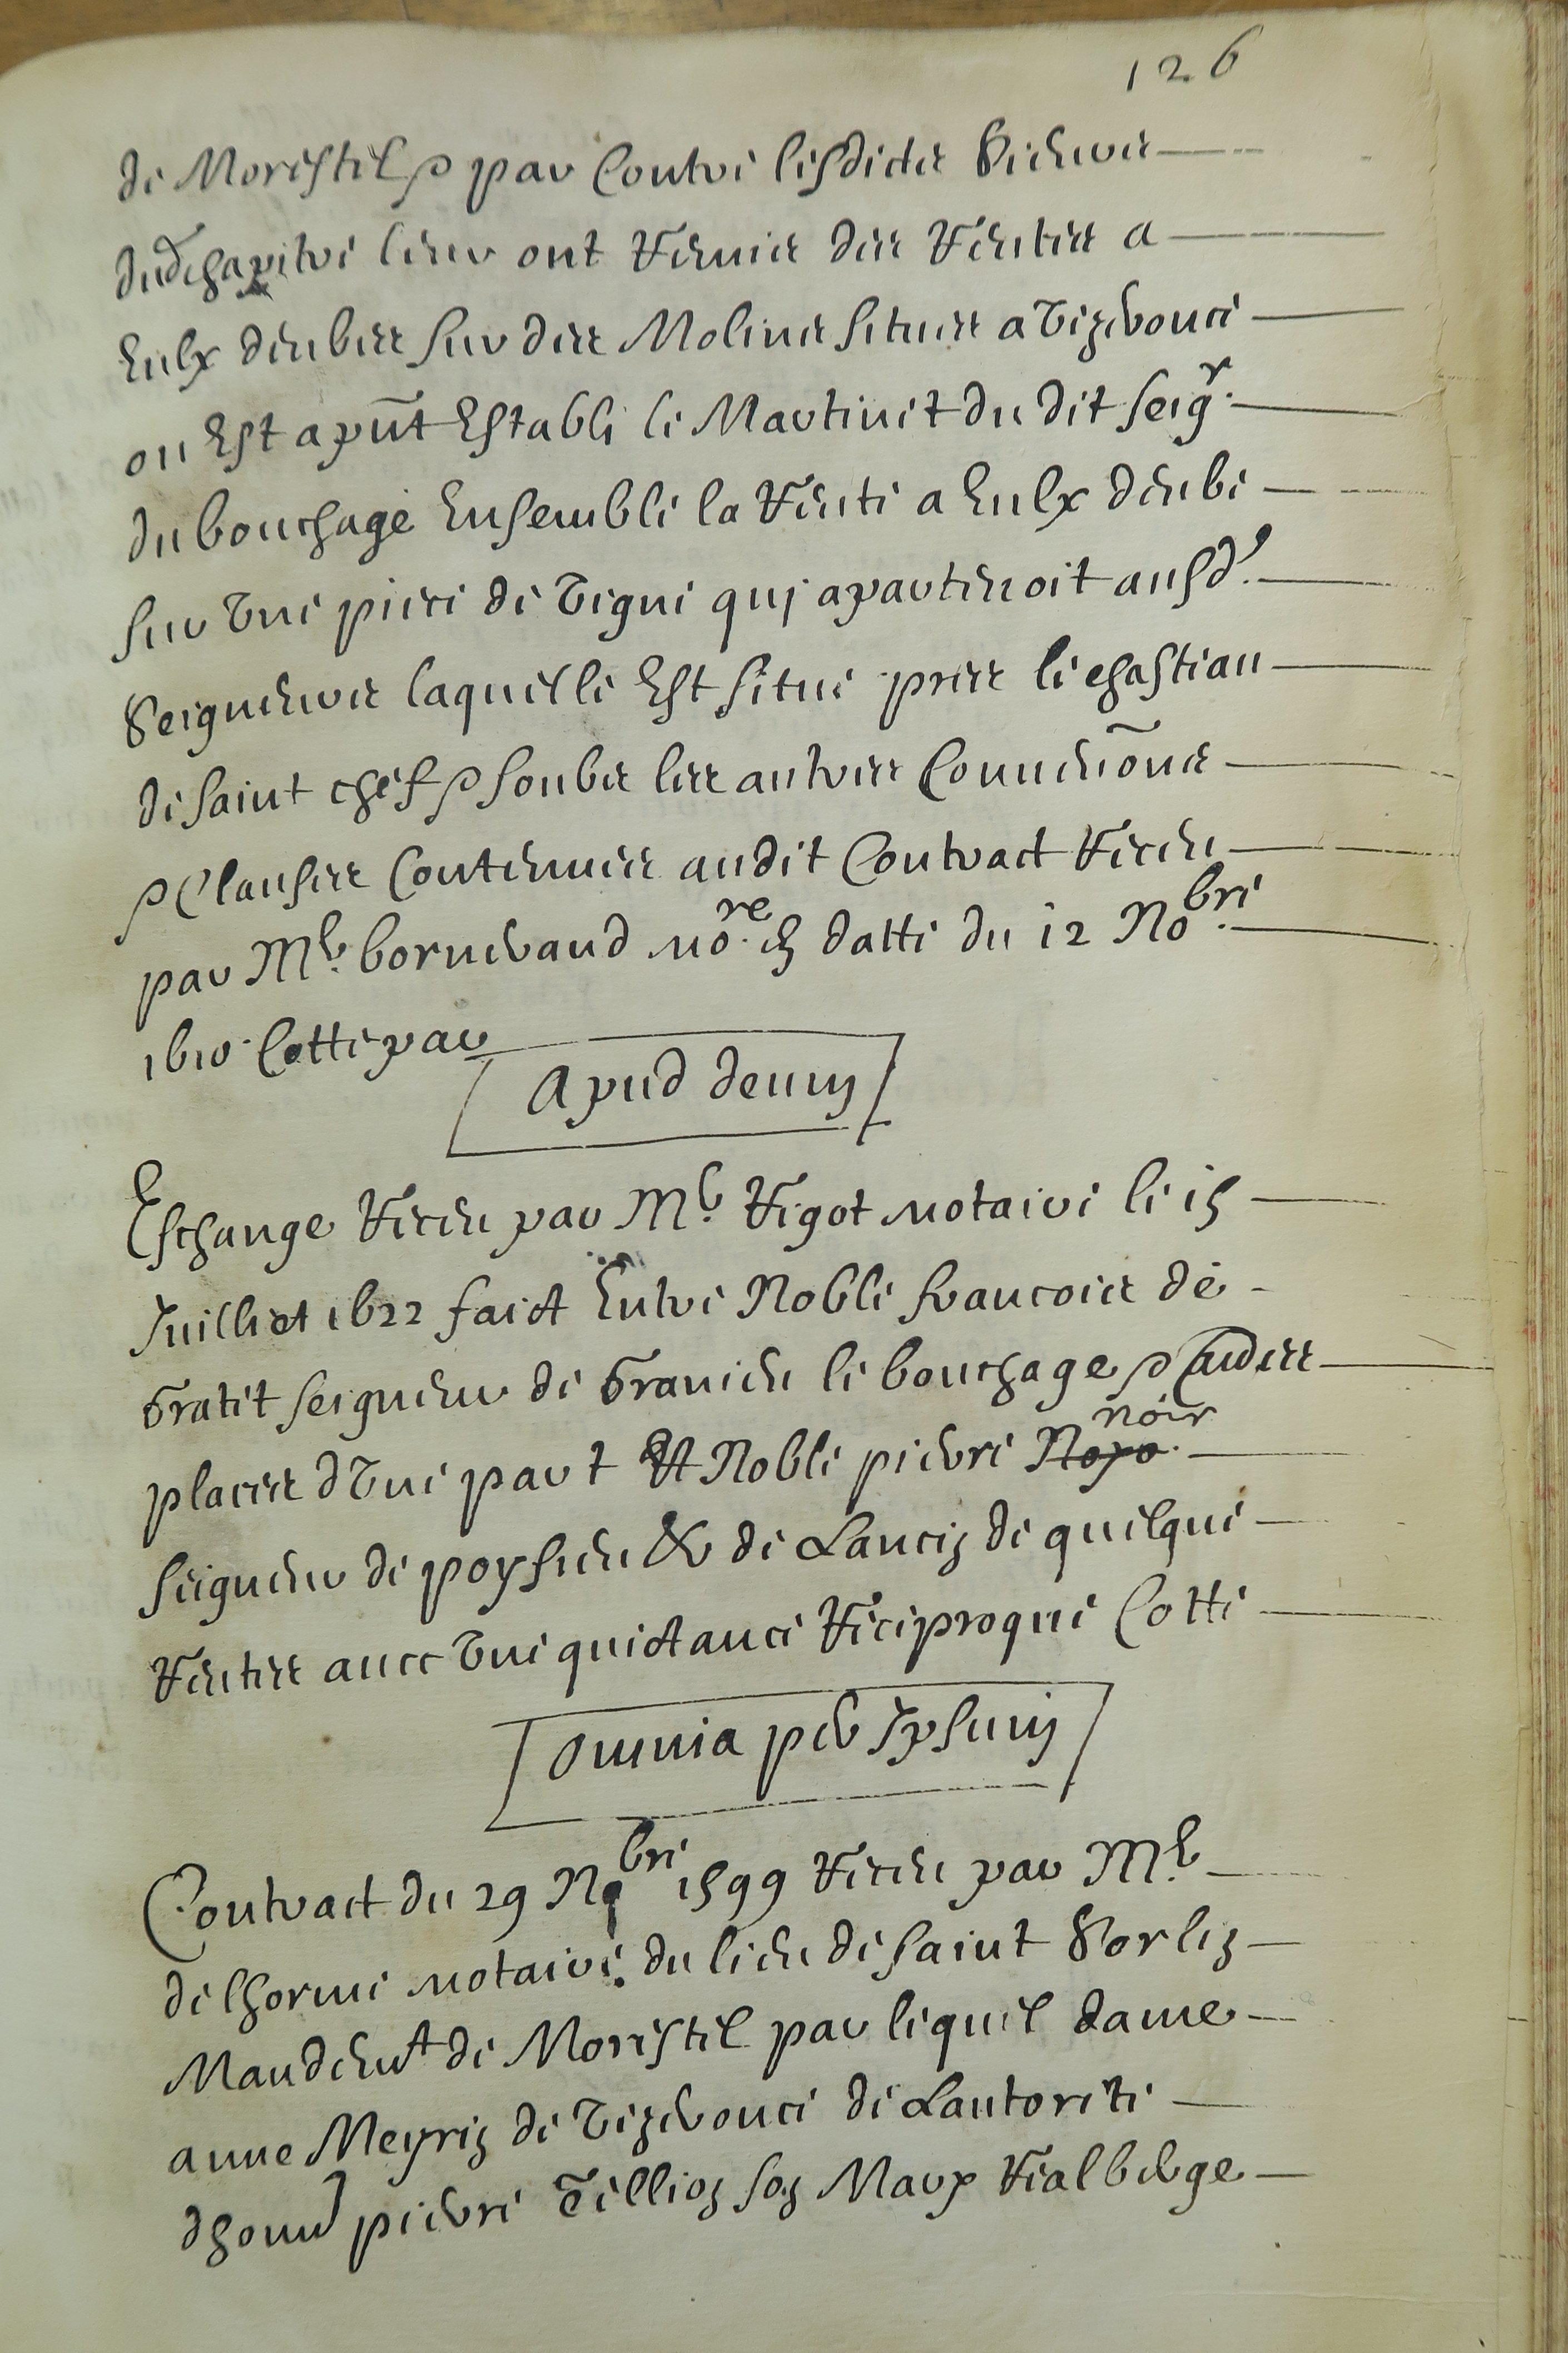 126
de Morestel & par Contre lesdicts Sieurs
dudchapitre leur ont Remis des Rentes a
Eulx deubes sur des Molins situes a Vezeronce
ou Est apñt Establi le Martinet du dit seigr.
du bouchage Ensemble la Rente a Eulx deube
sur Vne piece de Vigne qui apartenoit ausd.
Seigneurs laquelle Est situe pres le chastiau
de saint chef & soubs les autres Conneuõns
& Clauses Contenues audit Contract Receu
par Me. borneraud nore. En datte du 12 Nobre.
1610. Cotte par
Apud deum
Eschange Receu par Me. Rigot notaire le 15
Juilliet 1622 faict Entre Noble francois de
Gratet seigneur de Granieu le bouchage & Autres
places d Vne part Et Noble pierre Noyo. noir
seigneur de poysieu & de Lancin de quelque
Rentes auec Vne quictance Reciproque Cotte
Omnia per Ipsum
Contract du 29 Nobre 1599 Receu par Me.
delhorme notaire du lieu de saint Sorlin
Mandemt de Morestel par lequel dame
anne Meyrin de Vezeronce de Lautorite
dhonn pierre Tellion son Mary Realberge